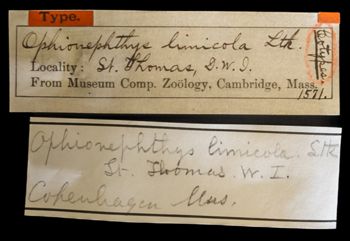 Type.
Ophionephthys limicola Ltk.
Cotypes.
Locality: St. Thomas, D.W.I.
From Museum Comp. Zoölogy, Cambridge, Mass.
1571.
Ophionephthys limicola. Ltk
St. Thomas W. I.
Copenhagen Mus.